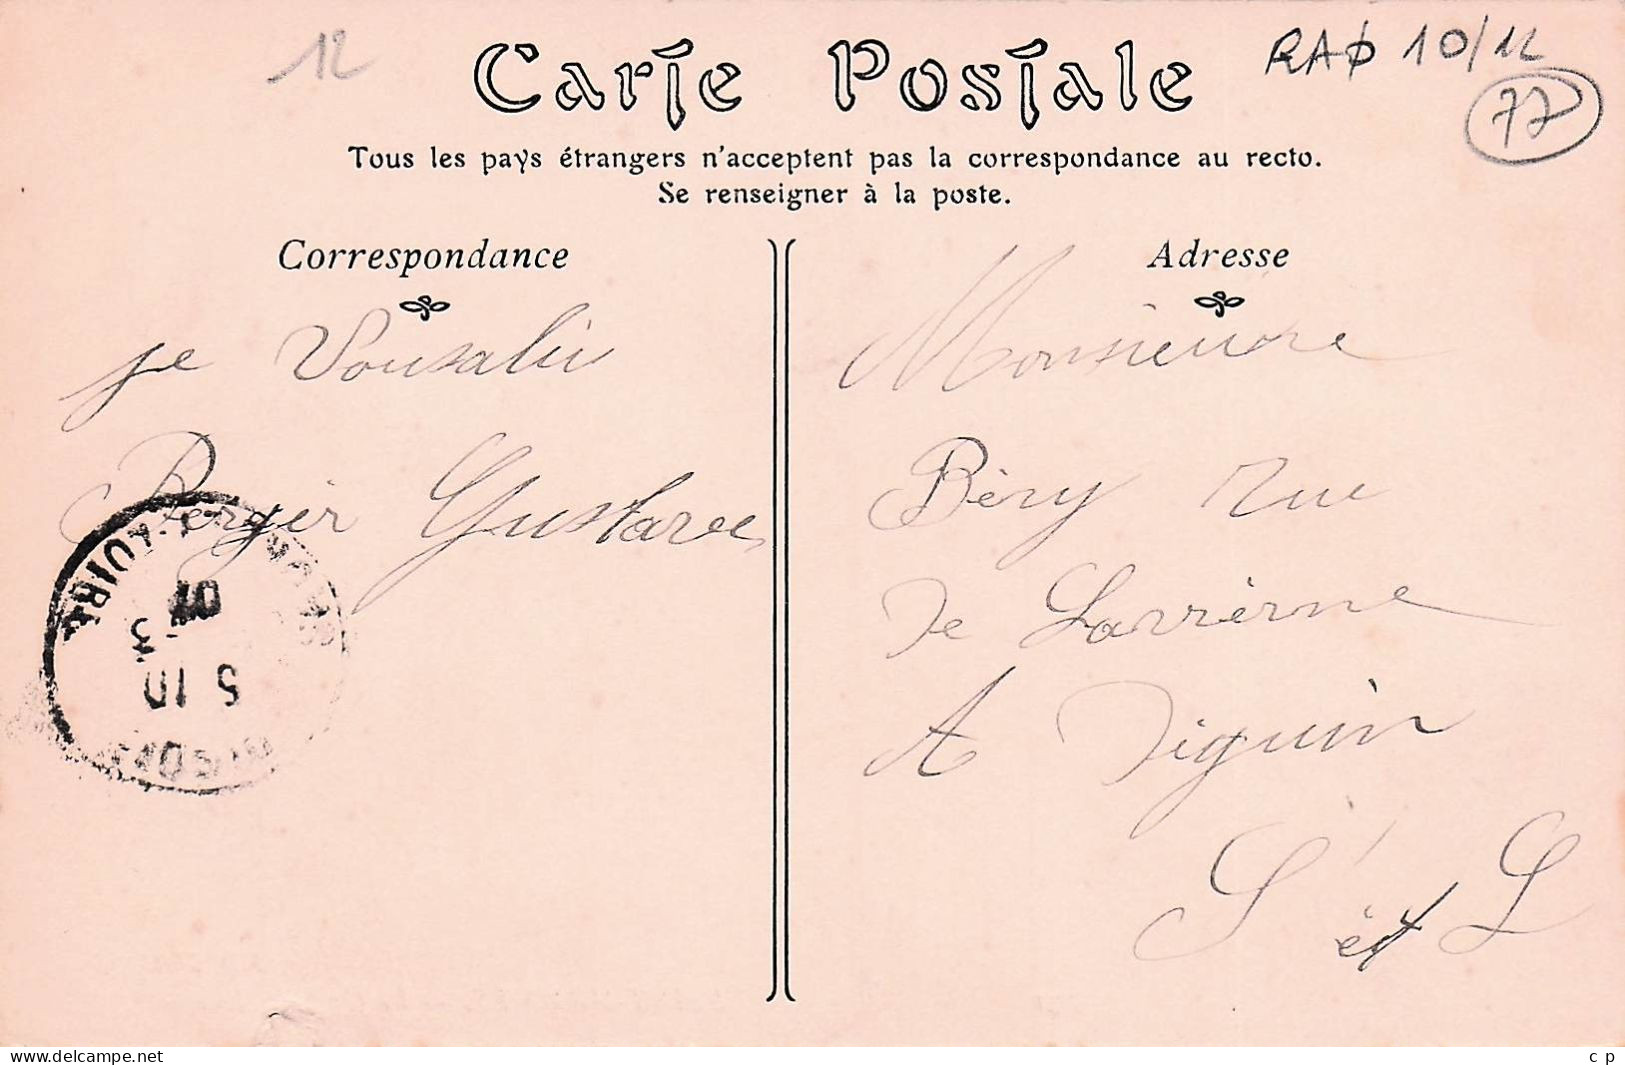 12
RAΦ 10/12
77
Carte Postale
Tous les pays étrangers n'acceptent pas la correspondance au recto.
Se renseigner à la poste.
Correspondance
je Vousalu
Bergér Gustave
5 10
3
07
Adresse
Monsieure
Bèry rue
de Lavrèrne
A Diguin
S et L
www.delcampe.net
c p